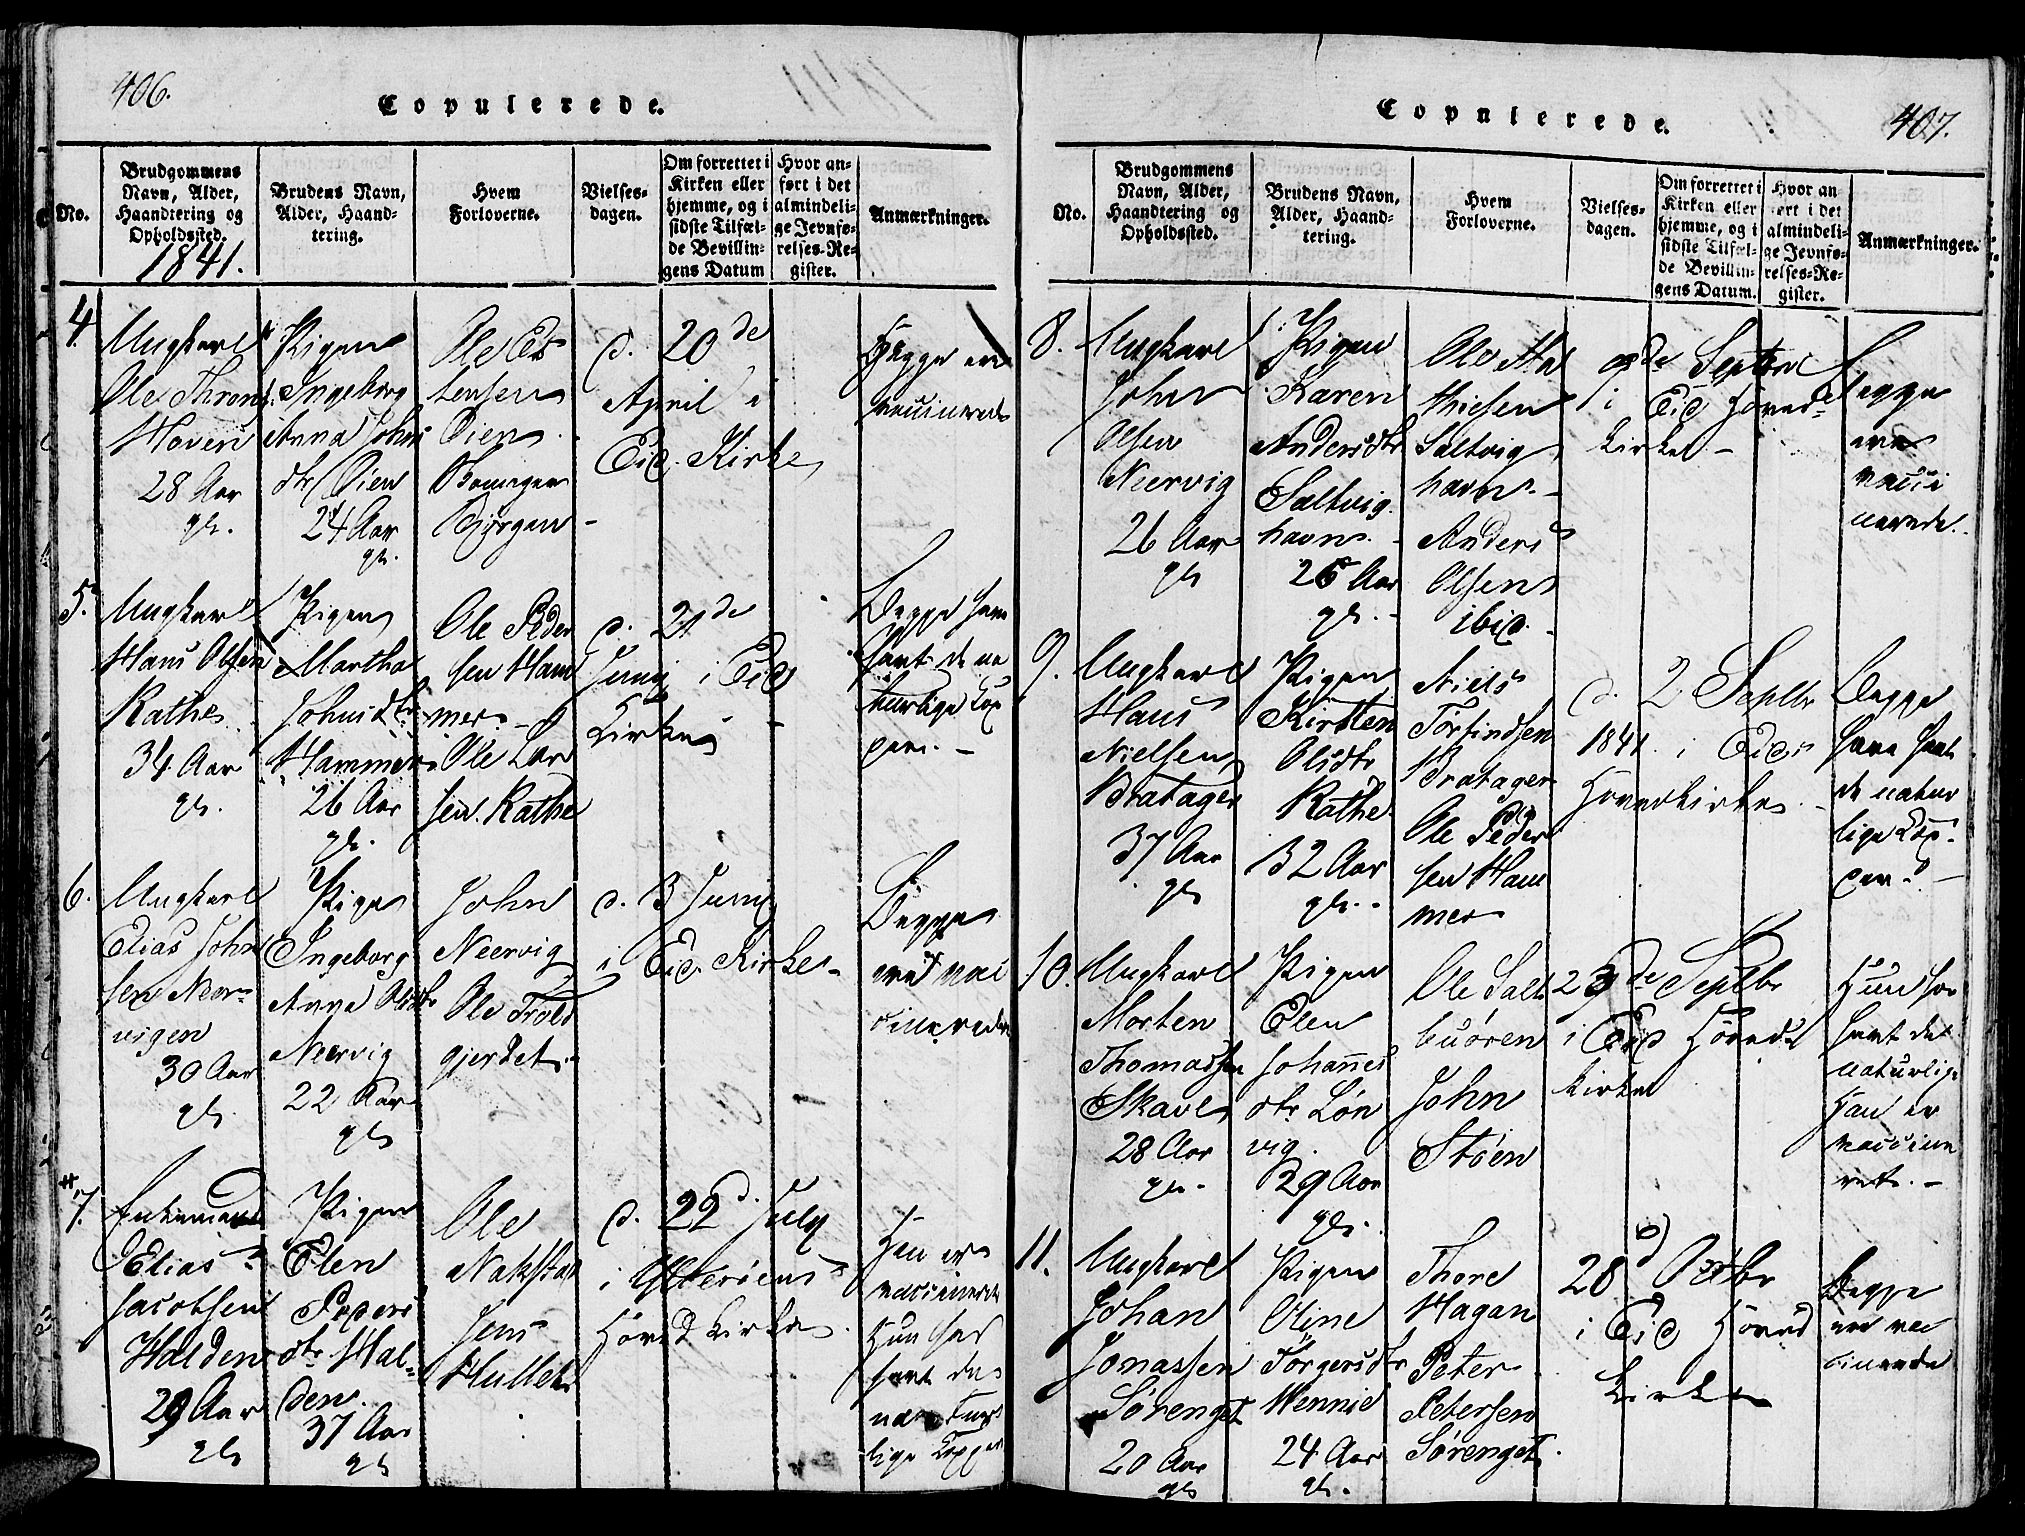 406.
Copulerede.
No.
Brudgommens
Navn, Alder,
Haandtering og
Opholdssted.
Brudens Navn,
Alder, Haand-
tering.
Hvem
Forloverne.
Vielses-
dagen.
Om forrettet i
Kirken eller
hjemme, og i
sidste Tilfæl-
de Bevillin-
gens Datum
Hvor an-
ført i det
almindeli-
ge Jevnfø-
relses-Re-
gister.
Anmærkninger.
1841.
4.
Ungkarl
Ole Thrond
Hoven
28 Aar
Pigen
Ingeborg
Anna Johns
dtr Øien
24 Aar
Ole
tensen
Øien
Bjørgan
d. 20de
April i
Eid Kirke
Begge ere
vaccinerede
5.
Ungkarl
Hans Olsen
Rathe
34 Aar
Pigen
Martha
Johnsdtr
Hammer
26 Aar
Ole Peder
sen Ham
mer
Ole Lar
sen Rathe
d. 21de
Juny i Eid
Kirke
Begge have
havt de na
turlige Kop
per.
6.
Ungkarl
Elias John
sen Neer-
vigen
30 Aar
Pigen
Ingeborg
Anna Olsdtr
Neervig
22 Aar
John
Neervig
Ole Trold
gjerdet
d. 3 Juny
i Eid Kirke
Begge
ere vac
cinerede
7.
Enkemand
Elias
Jacobsen
Halden
29 Aar
Pigen
Elen
Peders
dtr Hal-
den.
37 Aar
Ole
Nakstad
Jens
Hullet
d. 22d July
i Ytterøens
Hoved Kirke
Han er
vaccineret
Hun har
havt de
natur
lige Kopper
407.
Copulerede.
No.
Brudgommens
Navn, Alder,
Haandtering og
Opholdssted.
Brudens Navn,
Alder, Haand-
tering.
Hvem
Forloverne.
Vielses-
dagen.
Om forrettet i
Kirken eller
hjemme, og i
sidste Tilfæl-
de Bevillin-
gens Datum.
Hvor an
ført i det
almindeli-
ge Jevnfø-
relses-Re-
gister.
Anmærkninger.
8.
Ungkarl
John
Olsen
Neervig
26 Aar
Pigen
Karen
Andersdtr
Saltvig
havn
25 Aar
Ole Ma
thiesen
Saltvig
havn
Anders
Olsen
ibid.
9de Septbr
i Eid Hoved
kirke
Begge
ere
vacci
nerede.
9.
Ungkarl
Hans
Nielsen
Bratager
37 Aar
Pigen
Kirsten
Olsdtr
Rathe
32 Aar
Niels
Torfindsen
Bratager
Ole Peder
sen Ham
mer
d. 2 Septbr
1841. i Eids
Hovedkirke
Begge
have havt
de natur
lige Kop
per.
10.
Ungkarl
Morten
Thomassen
Skavl
28 Aar
Pigen
Elen
Johannes
dtr Løn
vig
29 Aar
Ole Salt
buøren
John
Støen
23de Septbr
i Eid Hoved
kirke
Hun har
havt de
naturlige
Han er
vaccine
ret.
11.
Ungkarl
Johan
Jonassen
Sørenget
20 Aar
Pigen
Oline
Torgersdtr
Wennie
24 Aar
Thore
Hagan
Peter
Petersen
Sørenget
28d Octbr
i Eid Hoved
Kirke
Begge
ere vac
cinerede